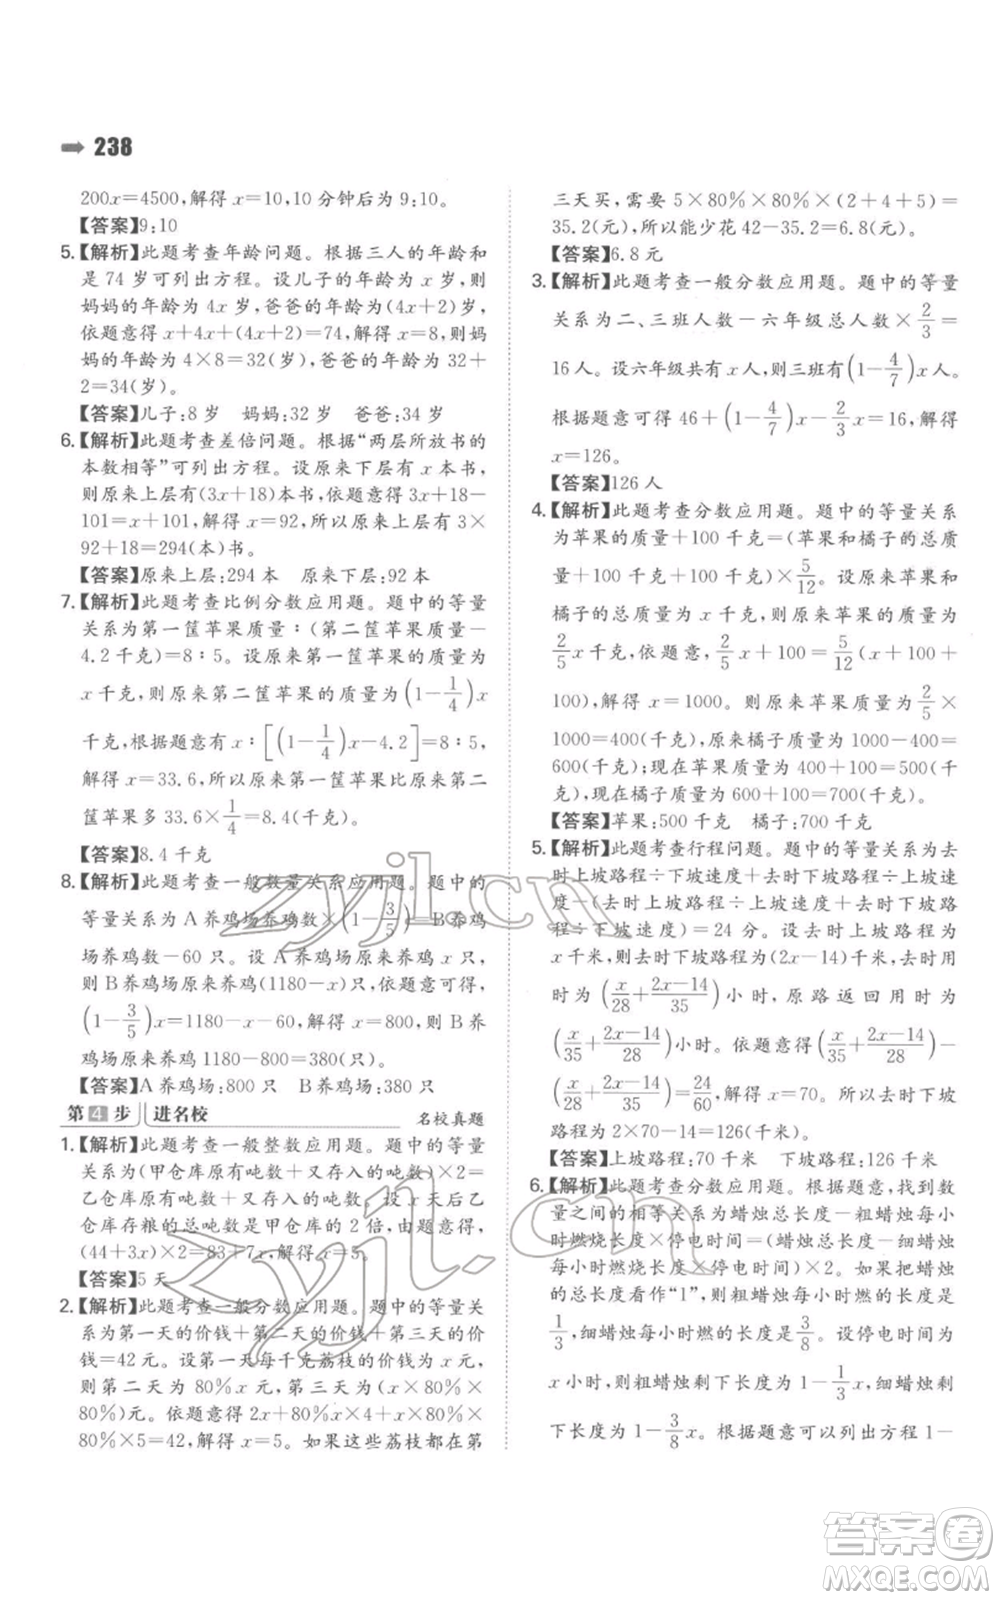 ➡ 238
200x=4500,解得 x=10,10 分钟后为 9:10。
【答案】9:10
5.【解析】此题考查年龄问题。根据三人的年龄和
是 74 岁可列出方程。设儿子的年龄为 x 岁,则
妈妈的年龄为 4x 岁,爸爸的年龄为(4x+2)岁,
依题意得 x+4x+(4x+2)=74,解得 x=8,则妈
妈的年龄为 4×8=32(岁),爸爸的年龄为 32+
2=34(岁)。
【答案】儿子:8 岁 妈妈:32 岁 爸爸:34 岁
6.【解析】此题考查差倍问题。根据“两层所放书的
本数相等”可列出方程。设原来下层有 x 本书,
则原来上层有(3x+18)本书,依题意得 3x+18-
101=x+101,解得 x=92,所以原来上层有 3×
92+18=294(本)书。
【答案】原来上层:294 本 原来下层:92 本
7.【解析】此题考查比例分数应用题。题中的等量
关系为第一筐苹果质量:(第二筐苹果质量-
4.2 千克)=8:5。设原来第一筐苹果的质量为
x 千克,则原来第二筐苹果的质量为(1-1/4)x
千克,根据题意有 x:[(1-1/4)x-4.2]=8:5,
解得 x=33.6,所以原来第一筐苹果比原来第二
筐苹果多 33.6×1/4=8.4(千克)。
【答案】8.4 千克
8.【解析】此题考查一般数量关系应用题。题中的
等量关系为 A 养鸡场养鸡数×(1-3/5)=B 养鸡
场养鸡数-60 只。设 A 养鸡场原来养鸡 x 只,
则 B 养鸡场原来养鸡(1180-x)只,依题意可得,
(1-3/5)x=1180-x-60,解得 x=800,则 B 养
鸡场原来养鸡 1180-800=380(只)。
【答案】A 养鸡场:800 只 B 养鸡场:380 只
第 4 步 进名校 名校真题
1.【解析】此题考查一般整数应用题。题中的等量
关系为(甲仓库原有吨数+又存入的吨数)×2=
乙仓库原有吨数+又存入的吨数。设 x 天后乙
仓库存粮的总吨数是甲仓库的 2 倍,由题意得,
(44+3x)×2=83+7x,解得 x=5。
【答案】5 天
2.【解析】此题考查一般分数应用题。题中的等量关
系为第一天的价钱+第二天的价钱+第三天的价
钱=42 元。设第一天每千克荔枝的价钱为 x 元,
则第二天为 80%x 元,第三天为(x×80%×
80%)元。依题意得 2x+80%x×4+x×80%×
80%×5=42,解得 x=5。如果这些荔枝都在第
三天买,需要 5×80%×80%×(2+4+5)=
35.2(元),所以能少花 42-35.2=6.8(元)。
【答案】6.8 元
3.【解析】此题考查一般分数应用题。题中的等量
关系为二、三班人数-六年级总人数×2/3=
16 人。设六年级共有 x 人,则三班有(1-4/7)x 人。
根据题意可得 46+(1-4/7)x-2/3x=16,解得
x=126。
【答案】126 人
4.【解析】此题考查分数应用题。题中的等量关系
为苹果的质量+100 千克=(苹果和橘子的总质
量+100 千克+100 千克)×5/12。设原来苹果和
橘子的总质量为 x 千克,则原来苹果的质量为
2/5x 千克,依题意,2/5x+100=5/12(x+100+
100),解得 x=1000。则原来苹果质量为2/5×
1000=400(千克),原来橘子质量为 1000-400=
600(千克);现在苹果质量为 400+100=500(千
克),现在橘子质量为 600+100=700(千克)。
【答案】苹果:500 千克 橘子:700 千克
5.【解析】此题考查行程问题。题中的等量关系为去
时上坡路程÷上坡速度+去时下坡路程÷下坡速
度-(去时下坡路程÷上坡速度+去时上坡路
程÷下坡速度)=24 分。设去时上坡路程为
x 千米,则去时下坡路程为(2x-14)千米,去时用
时为(x/28+2x-14/35)小时,原路返回用时为
(x/35+2x-14/28)小时。依题意得(x/28+2x-14/35)-
(x/35+2x-14/28)=24/60,解得 x=70。所以去时下坡
路程为 2×70-14=126(千米)。
【答案】上坡路程:70 千米 下坡路程:126 千米
6.【解析】此题考查分数应用题。根据题意,找到数
量之间的相等关系为蜡烛总长度-粗蜡烛每小
时燃烧长度×停电时间=(蜡烛总长度-细蜡烛
每小时燃烧长度×停电时间)×2。如果把蜡烛
的总长度看作“1”,则粗蜡烛每小时燃的长度是
1/3,细蜡烛每小时燃的长度是3/8。设停电时间为
x 小时,则粗蜡烛剩下长度为 1-1/3x,细蜡烛剩
下长度为 1-3/8x。根据题意可以列出方程 1-
zyjl.cn
zyjl.cn
答案圈
MXQE.COM